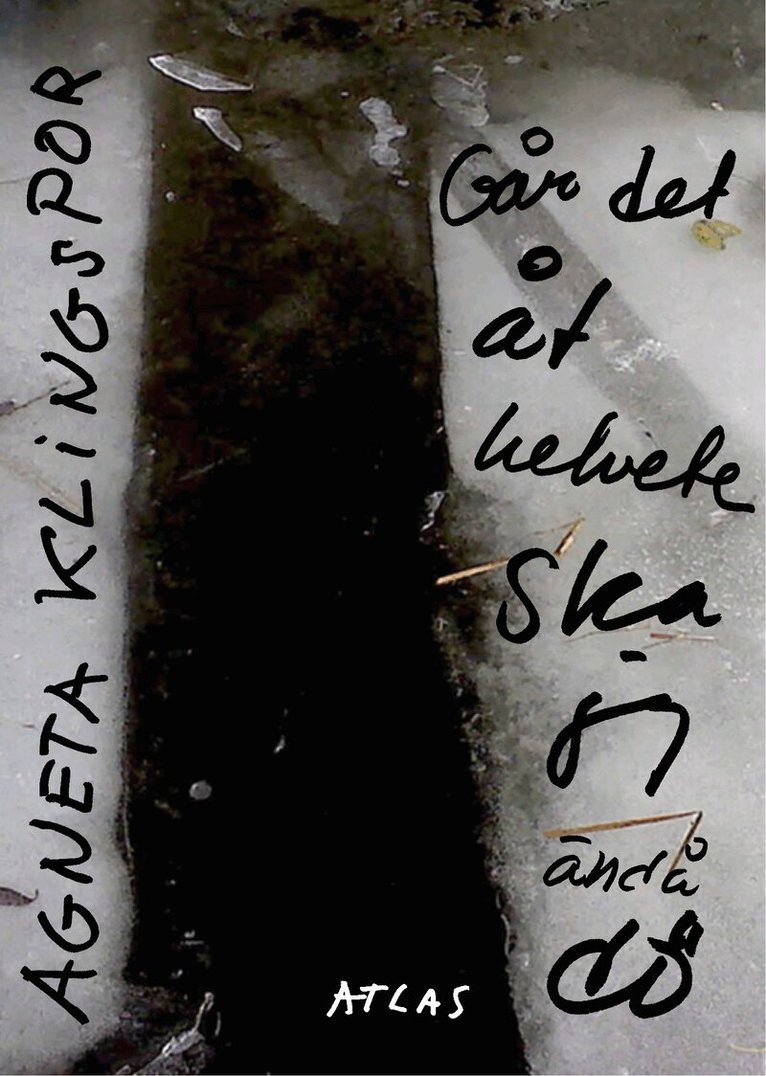 AGNETA KLINGSPOR
Går det
åt
helvete
ska
jag
ändå
dö
ATLAS